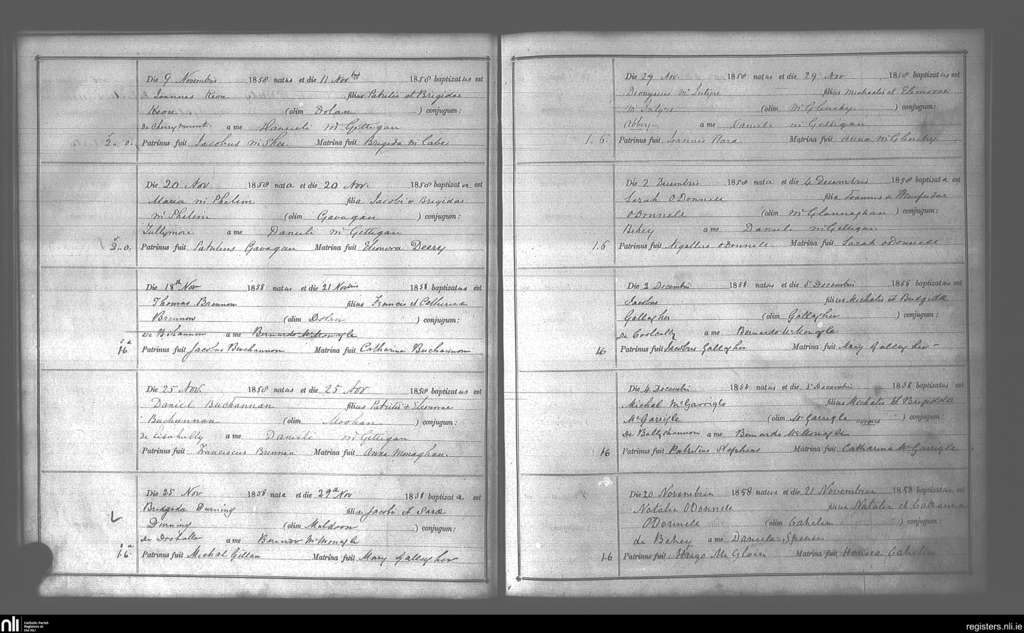 Die 9 Novembris 1858 natus et die 11 Nov 1858 baptizatus est
Joannes Keon filius Patritii et Brigidae
Keon (olim Dolan ) conjugum:
de Cherrymount a me Danieli McGettigan
5. 0. Patrinus fuit Jacobus McShee Matrina fuit Brigida McCabe
Die 20 Nov. 1858 nata et die 20 Nov. 1858 baptizata est
Maria McPhelim filia Jacobi & Brigidae
McPhelim (olim Gavagan ) conjugum:
Tullymore a me Danieli McGettigan
5. 0. Patrinus fuit Patritius Gavagan Matrina fuit Elenora Deery
Die 18th Nov 1858 natus et die 21 Novbris 1858 baptizatus est
Thomas Brennan filius Francis et Catherina
Brennan (olim Dolan ) conjugum:
de a me Bernardo McMonagle
1.6 Patrinus fuit Jacobus Buchannon Matrina fuit Catharina Buchannon
Die 25 Nov. 1858 natus et die 25 Nov 1858 baptizatus est
Daniel Buchannan filius Patritii & Elenorae
Buchannan (olim ) conjugum:
de a me Danieli McGettigan
Patrinus fuit Franciscus Brennan Matrina fuit Anna Monaghan
Die 25 Nov 1858 nata et die 29 Nov 1858 baptizata est
Brigida Dinning filia Jacobi et Sara
Dinning (olim Muldoon ) conjugum:
de a me Bernardo McMonagle
1.6 Patrinus fuit Michal Gillan Matrina fuit Mary Gallagher
Die 29 Nov 1858 natus et die 29 Nov 1858 baptizatus est
Dionysius McIntyre filius Michaelis et Elenorae
McIntyre (olim McGlinchy ) conjugum:
Abbey a me Danieli McGettigan
1.6. Patrinus fuit Joannis Ward Matrina fuit Anna McGlinchy
Die 2 Decembris 1858 nata et die 4 Decembris 1858 baptizata est
Sarah O'Donnell filia Joannis &
O'Donnell (olim ) conjugum:
Behey a me Danieli McGettigan
1.6 Patrinus fuit O'Donnell Matrina fuit Sarah O'Donnell
Die 2 Decembri 1858 natus et die 5 Decembri 1858 baptizatus est
Jacobus filius Michalis et Bridgidda
Gallagher (olim Gallagher ) conjugum:
de Coolcolly a me Bernardo McMonagle
16 Patrinus fuit Jacobus Gallagher Matrina fuit Mary Gallagher
Die 4 Decembri 1858 natus et die 5 Decembri 1858 baptizatus est
Michal McGarrigle filius Michalis et Brigidda
McGarrigle (olim McGarrigle ) conjugum:
de Ballyshannon a me Bernardo McMonagle
16 Patrinus fuit Patritius Stephens Matrina fuit Catharina McGarrigle
Die 20 Novembris 1858 natus et die 21 Novembris 1858 baptizatus est
Natalis O'Donnell filius Natalis et Catharina
O'Donnell (olim Cahelin ) conjugum:
de Behey a me Daniele Spence
1.6 Patrinus fuit Hugo McGloin Matrina fuit Honora Cahelin
nli
Catholic Parish
Registers at
the NLI
registers.nli.ie